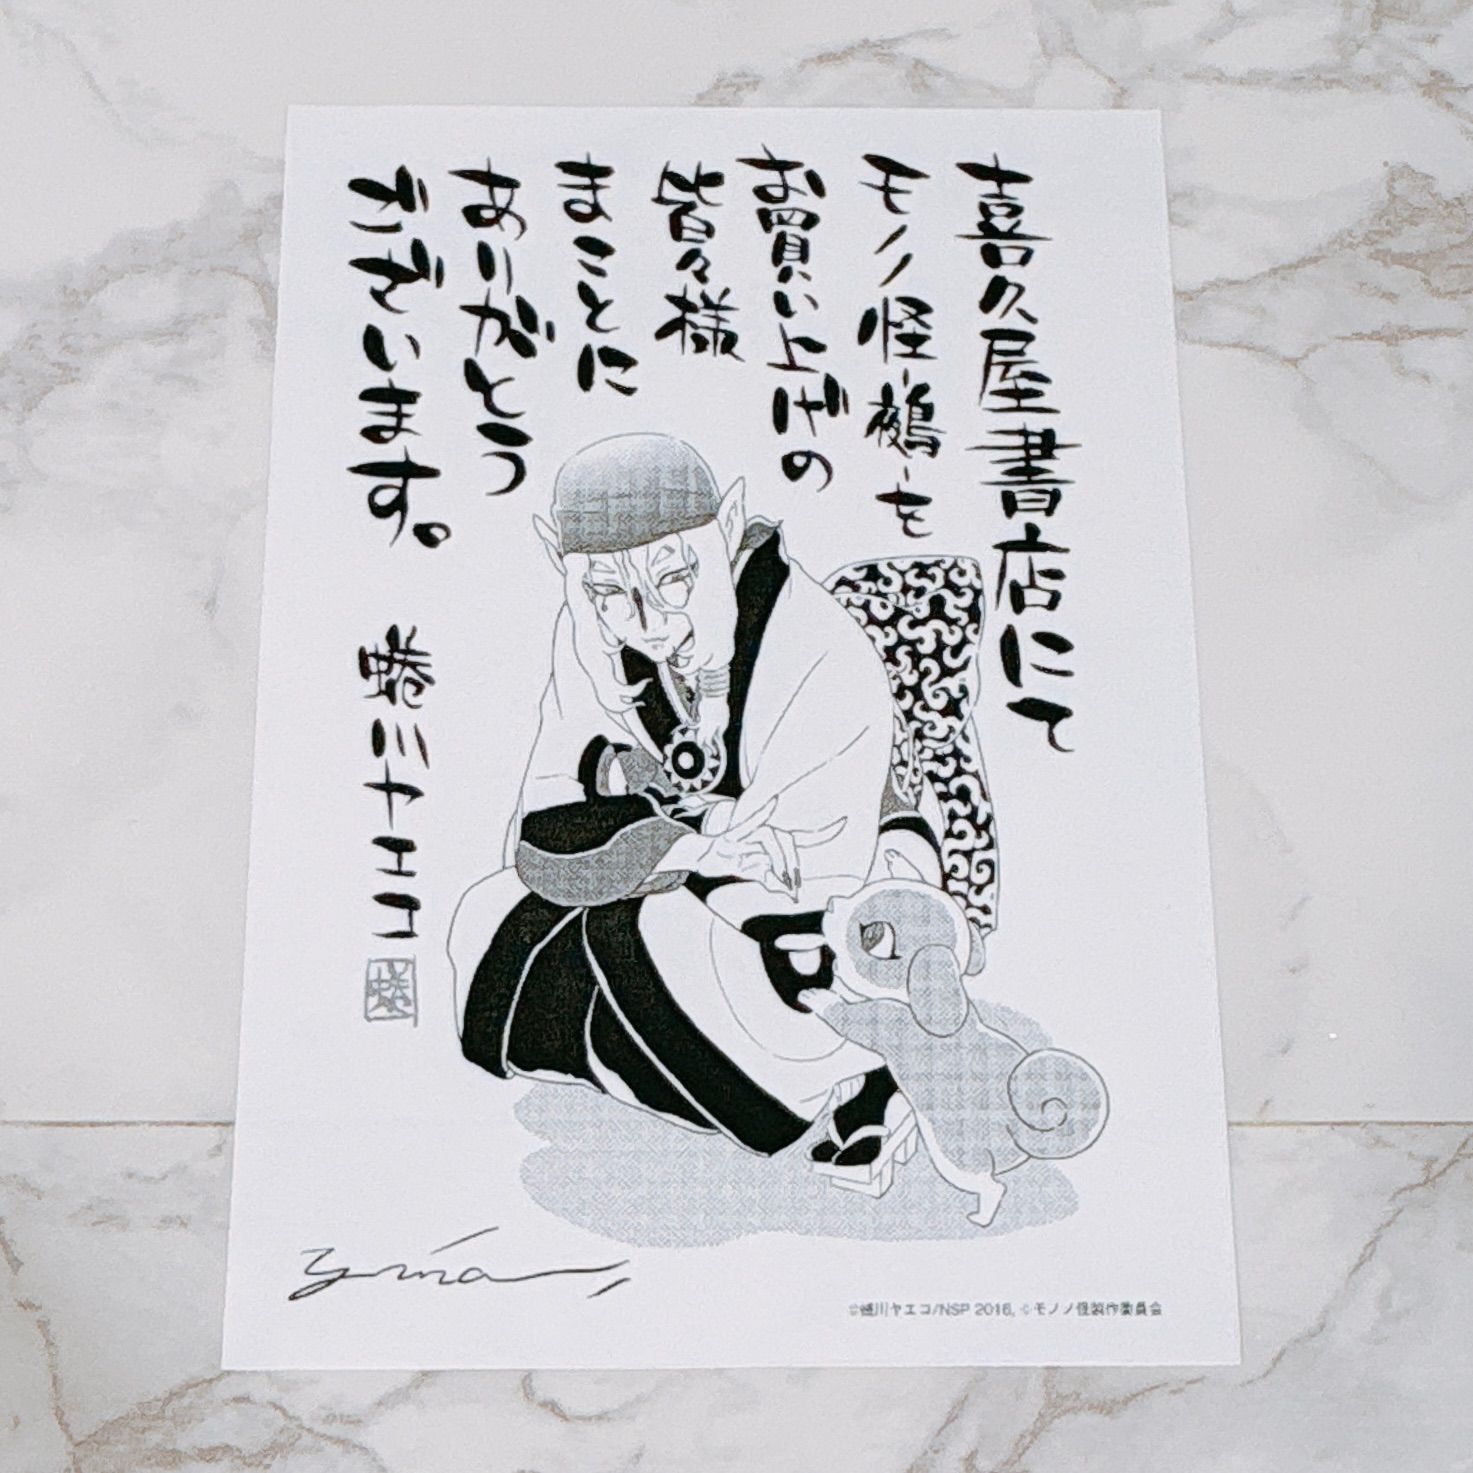 喜久屋書店にて
モノノ怪-鵺-を
お買い上げの
皆々様
まことに
ありがとう
ございます。
蜷川ヤエコ
蜷
©蜷川ヤエコ/NSP 2016, ©モノノ怪製作委員会